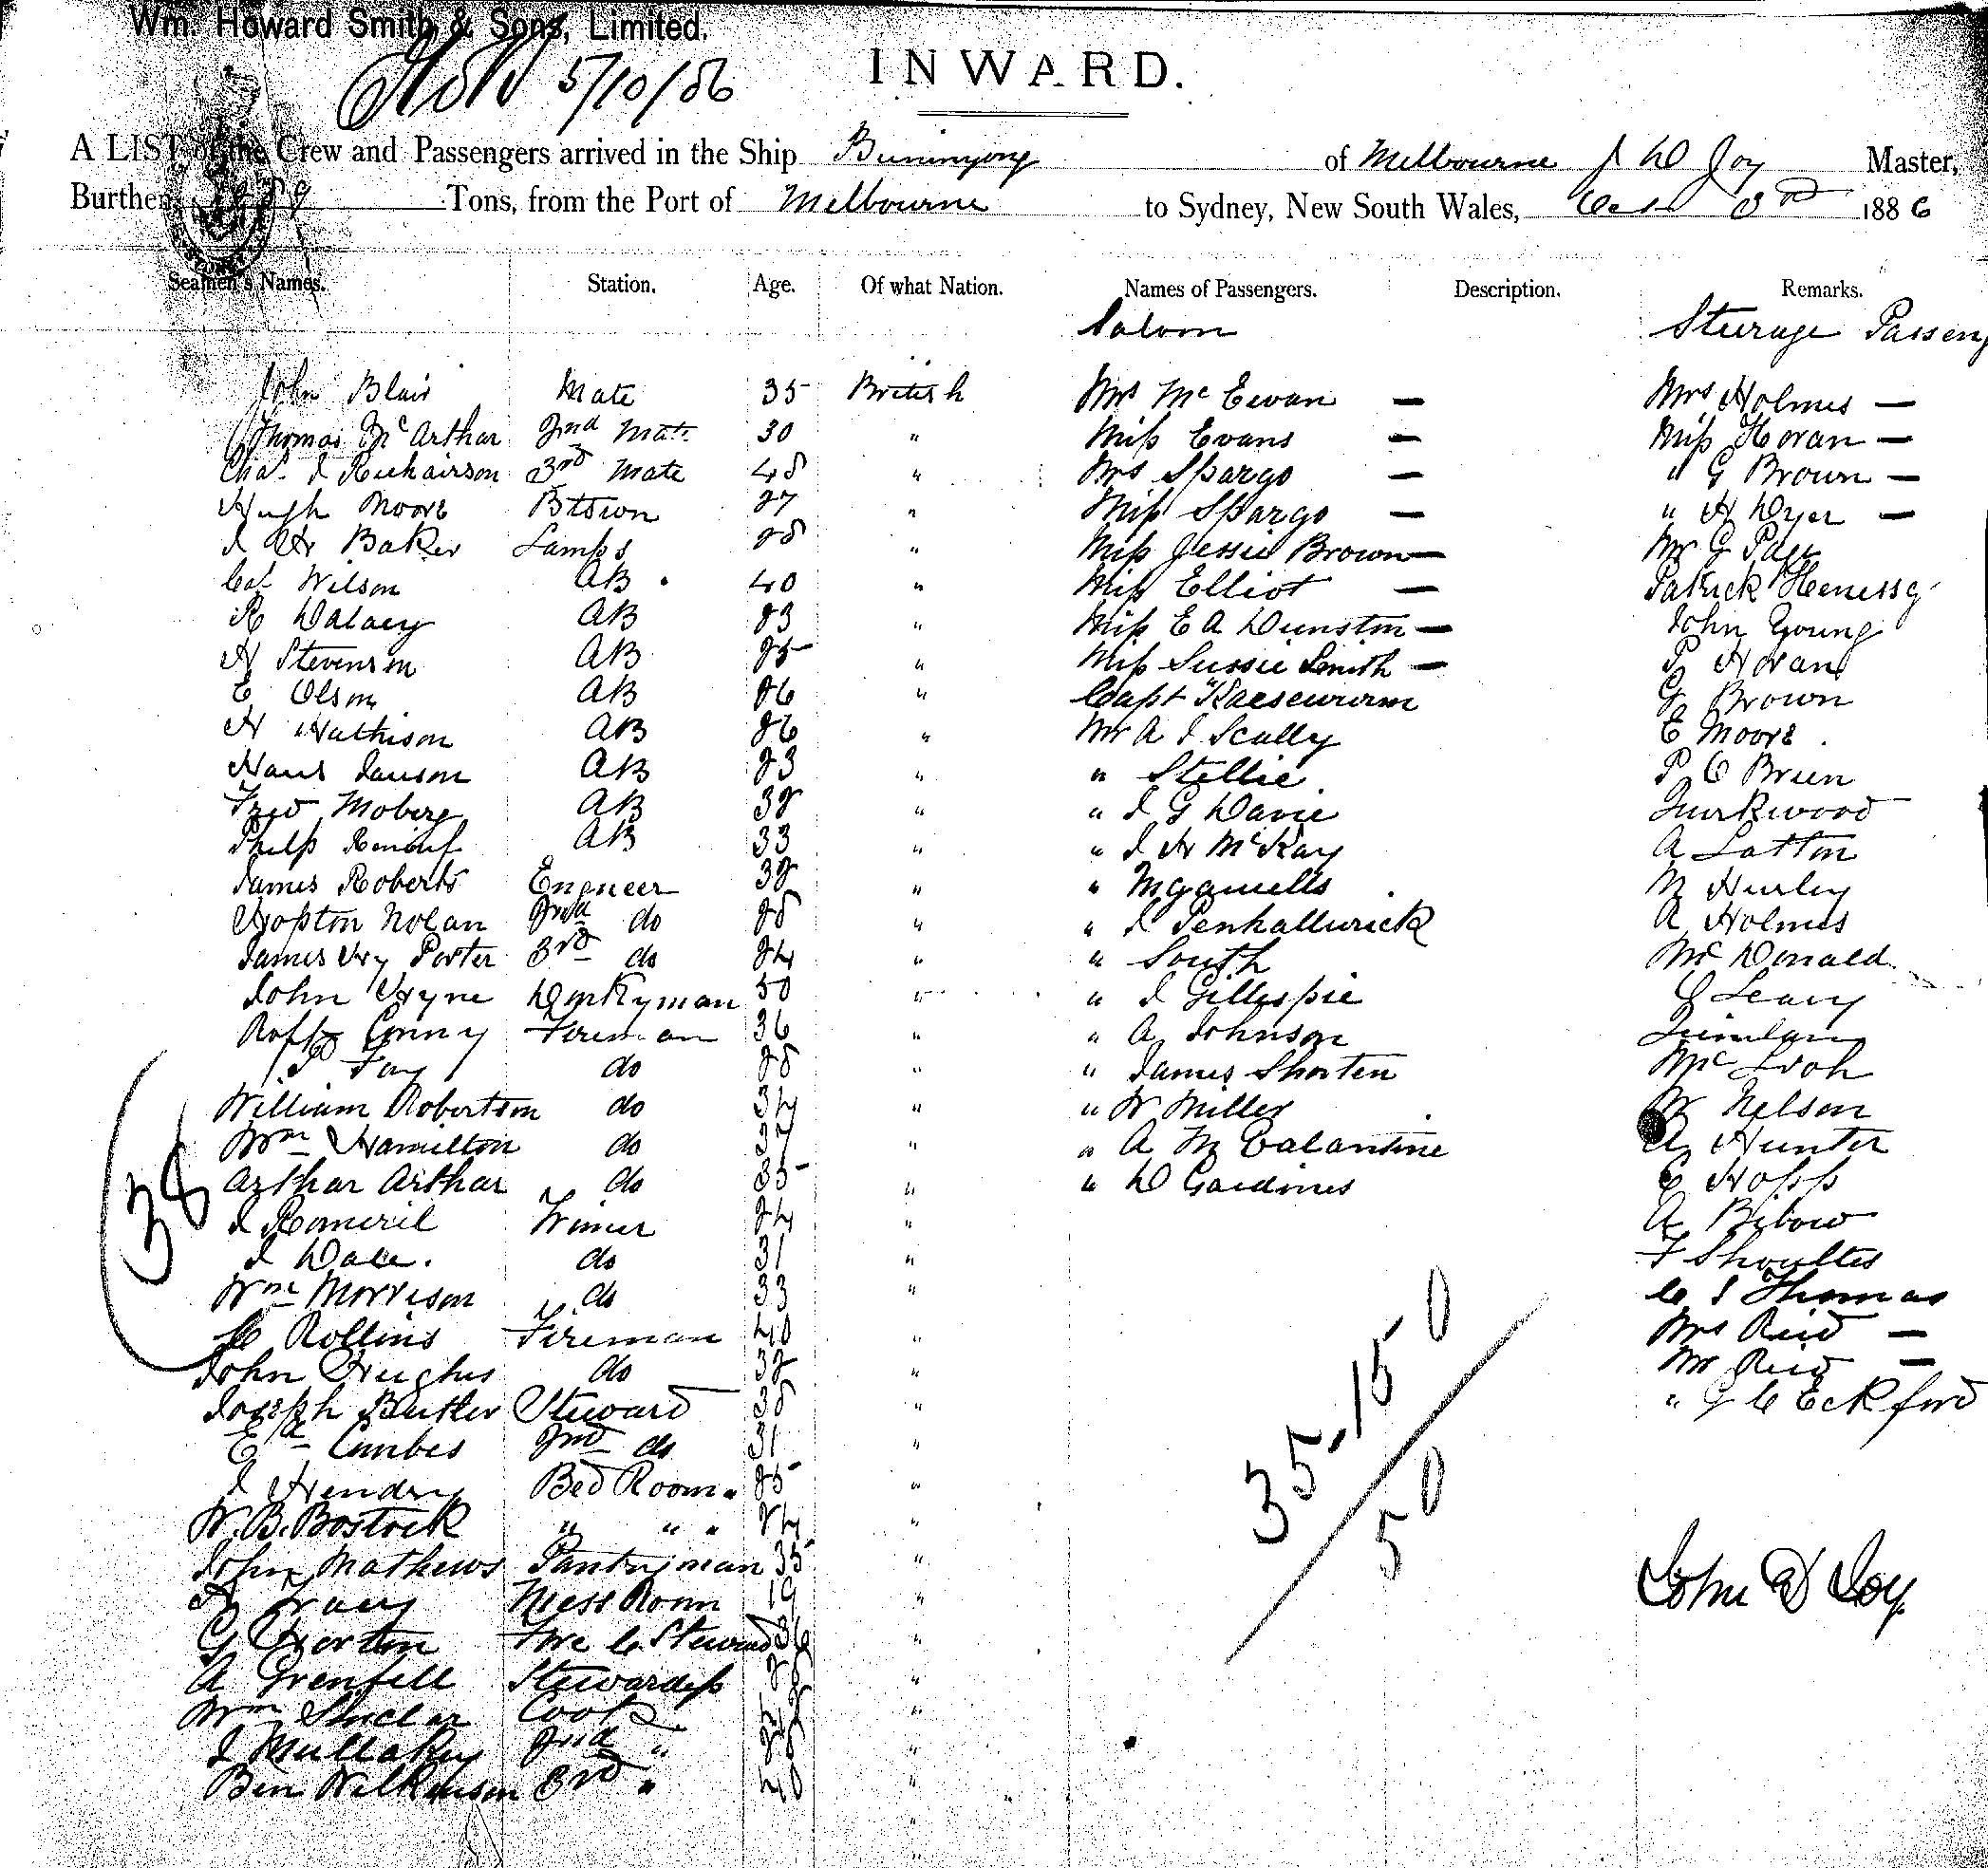 Wm. Howard Smith & Sons, Limited.
5/10/86
INWARD.
A LIST of the Crew and Passengers arrived in the Ship Buninyong of Melbourne J W Joy Master,
Burthen Tons, from the Port of Melbourne to Sydney, New South Wales, Oct 3rd 1886
Seamen's Names. Station. Age. Of what Nation. Names of Passengers. Description. Remarks.
Saloon Steerage Passeng
John Blair Mate 35 British Mrs McEwan — Mrs Holmes —
Thomas McArthar 2nd Mate 30 " Miss Evans — Miss Horan —
Chas J Richairson 3rd Mate 48 " Mrs Spargo — " G Brown —
Hugh Moore Btswn 27 " Miss Spargo — " A Dyer —
J H Baker Lamps 28 " Miss Jessie Brown — Mr G Page
Wilson AB 40 " Miss Elliot — Patrick Henessy
R Dalaey AB 23 " Miss E A Dunstan — John Young
A Stevenson AB 25 " Miss Sussie Smith — P Horan
E Olson AB 26 " Capt Kaeseworm G Brown
H Mathison AB 26 " Mr A J Scally E Moore
Hans Janson AB 23 " " Stellie P O Brien
Fred Moberg AB 32 " " J G Davie Quirkwood
Philp Renouf AB 33 " " J H McKay A Latton
James Roberts Engneer 32 " " Mgamells M Hurley
Hopton Nolan 2nd do 28 " " J Penhallurick A Holmes
James Hy Porter 3rd do 24 " " South McDonald
John Hyne Donkyman 50 " " J Gillespie O Leary
Conny Fireman 36 " " A Johnson Quinlan
Fay do 28 " " James Shorten
William Robertson do 34 " " W Miller W Nelson
Wm Hamilton do 37 " " A M Calantine A Hunter
38
Arthar Arthar do 35 " " D Gardines C Hopp
J Romeril Trimer 24 " A Bibow
J Dale. do 31 " F Shoultes
Wm Morrison do 33 " C J Thomas
C Rollins Fireman 40 " Mrs Reid —
John Hughes do 32 " Mr Reid —
Joseph Butler Steward 38 " " G C Eckford
Combes 2nd do 31 "
J Hendry Bed Room " 25 "
W. B. Bostock " " " 24 "
John Mathews Pantryman 35 "
Mess Room 19 "
G Horton Fore C Steward 36 "
A Grenfell Stewardess "
Wm Sinclar Cook "
J Mullakey 2nd " "
Ben Wilkinson 3rd " 40 "
35.15 0
50
John W Joy.